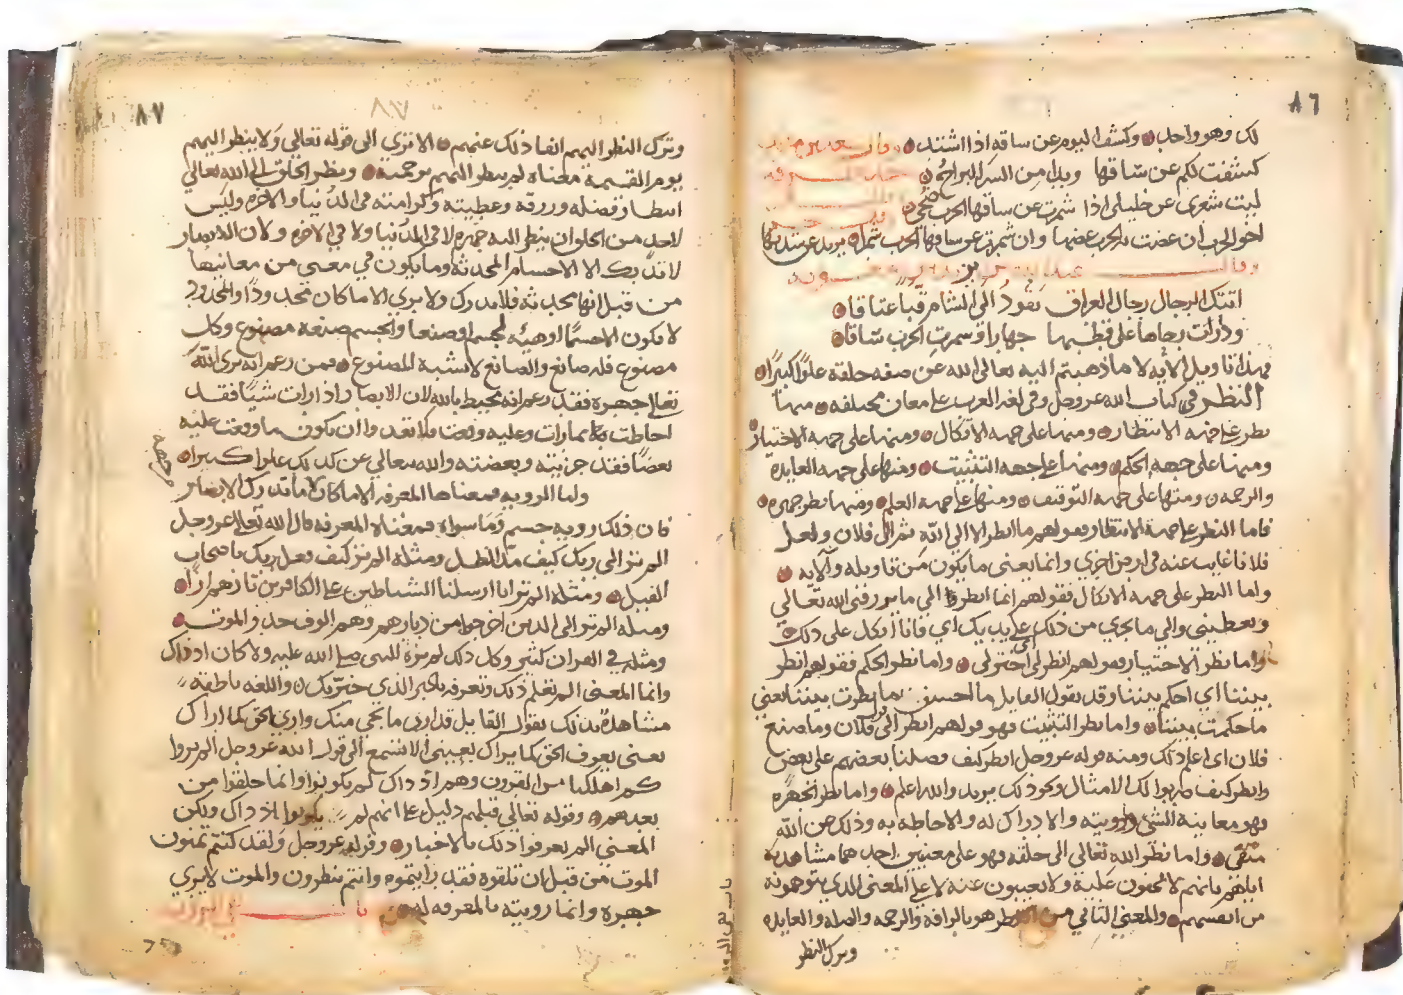 ٨٦
لك وهو واحد وكشف اليوم عن ساقه اذا اشتد
كشفت لكم عن ساقها وبدا من السر البراح
ليت شعري عن خليلي اذا شمرت عن ساقها الحرب
اخو الحرب ان عضت به الحرب عضها وان شمرت عن ساقها الحرب شمرا يريد عن شدتها
اتتك الرجال رجال العراق تقود الى الشام قبا عتاقا
ودارت رحاها على قطبها جهارا وشمرت الحرب ساقا
فهذا تاويل الاية لا ما ذهبتم اليه تعالى الله عن صفة خلقه علوا كبيرا
النظر في كتاب الله عز وجل وفي لغة العرب على معان مختلفه منها
نظر على جهة الانتظار ومنها على جهة الاتكال ومنها على جهة الاختيار
ومنها على جهة الحكم ومنها على جهة التثبيت ومنها على جهة العايدة
والرحمة ومنها على جهة التوقيف ومنها على جهة العلم ومنها نظر جهرة
فاما النظر على جهة الانتظار فقولهم ما انظر الا الى الله ثم الى فلان ولعل
فلانا غايب عنه في ارض اخرى وانما يعني ما يكون من تاويله وآلايه
واما النظر على جهة الاتكال فقولهم انما انظر الى ما يرزقني الله تعالى
ويعطيني والى ما يجري من ذلك على يديك اي فانا اتكل على ذلك
واما نظر الاختيار فقولهم انظر لي اي اختر لي واما نظر الحكم فقولهم انظر
بيننا اي احكم بيننا وقد يقول القايل ما احسن ما نظرت بيننا يعني
ما حكمت بيننا واما نظر التثبيت فهو قولهم انظر الى فلان وما صنع
فلان اي اعلم ذلك ومنه قوله عز وجل انظر كيف فضلنا بعضهم على بعض
وانظر كيف ضربوا لك الامثال ونحو ذلك يريد والله اعلم واما نظر الجهرة
فهو معاينة الشي ورويته والادراك له والاحاطة به وذلك عن الله
منفي واما نظر الله تعالى الى خلقه فهو على معنيين احدهما مشاهدته
اياهم بانهم لا يخفون عليه ولا يغيبون عنه لا على المعنى الذي يتوهمونه
من انفسهم والمعنى الثاني من النظر هو بالرافة والرحمة والصلة والعايدة
وترك النظر
٨٧
٨٧
وترك النظر اليهم انفاذ ذلك عنهم الا ترى الى قوله تعالى ولا ينظر اليهم
يوم القيمة معناه لم ينظر اليهم برحمته ونظر الخلق الى الله تعالى
انتظار فضله ورزقه وعطيته وكرامته في الدنيا والاخرة وليس
لاحد من الخلق ان ينظر اليه جهرة لا في الدنيا ولا في الاخرة ولان الابصار
لا تدرك الا الاجسام المحدثة وما يكون في معنى من معانيها
من قبل انها محدثة فلا تدرك ولا يرى الا ما كان محدودا والمحدود
لا يكون الا جسما او هيئة لجسم او صنعا والجسم صنعة مصنوع وكل
مصنوع فله صانع والصانع لا يشبه المصنوع فمن زعم انه يرى الله
تعالى جهرة فقد زعم انه يحيط بالله لان الابصار اذا رات شيا فقد
احاطت بما رات وعليه وقعت فلا تعدوا ان يكون ما وقعت عليه
بعضا فقد جزيته وبعضته والله تعالى عن ذلك علوا كبيرا
واما الروية فمعناها المعرفة الا ما كان مما تدرك الابصار
فان ذلك روية جسم وما سواه فمعناه المعرفة قال الله تعالى عز وجل
الم تر الى ربك كيف مد الظل ومثله الم تر كيف فعل ربك باصحاب
الفيل ومثله الم تر انا ارسلنا الشياطين على الكافرين تازهم ازا
ومثله الم تر الى الذين اخرجوا من ديارهم وهم الوف حذر الموت
ومثله في القران كثير وكل ذلك لم يره النبي صلى الله عليه ولا كان اذ ذاك
وانما المعنى الم تعلم ذلك وتعرفه بالخبر الذي خبرتك واللغة ناطقة
مشاهدة بذلك يقول القايل قد ارى ما يجي منك وارى الحق كما اراك
يعني يعرف الحق كما يراك بعينه الا تسمع الى قول الله عز وجل الم يروا
كم اهلكنا من القرون وهم اذ ذاك لم يكونوا وانما خلقوا من
بعدهم وقوله تعالى قبلهم دليل على انهم لم يكونوا اذ ذاك ولكن
المعنى الم يعرفوا ذلك بالاخبار وقوله عز وجل ولقد كنتم تمنون
الموت من قبل ان تلقوه فقد رايتموه وانتم تنظرون والموت لا يرى
جهرة وانما رويته بالمعرفة له